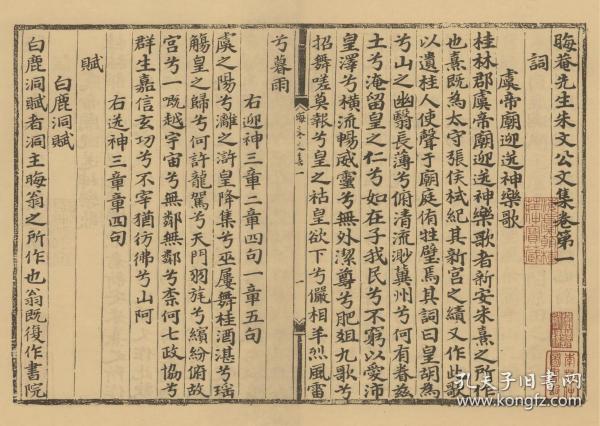 晦菴先生朱文公文集卷第一
詞
虞帝廟迎送神樂歌
桂林郡虞帝廟迎送神樂歌者新安朱熹之所作
也熹既為太守張侯栻紀其新宮之績又作此歌
以遺桂人使聲于廟庭侑牲璧焉其詞曰皇胡為
兮山之幽翳長薄兮俯清流渺冀州兮何有眷兹
土兮淹留皇之仁兮如在子我民兮不窮以愛沛
皇澤兮橫流暢威靈兮無外潔尊兮肥俎九歌兮
招舞嗟莫報兮皇之祜皇欲下兮儼相羊烈風雷
兮暮雨
右迎神三章二章四句一章五句
虞之陽兮灕之滸皇降集兮巫屢舞桂酒湛兮瑶
觴皇之歸兮何許龍駕兮天門羽旄兮繽紛俯故
宮兮一嘅越宇宙兮無鄰無鄰兮柰何七政協兮
群生嘉信玄功兮不宰猶彷彿兮山阿
右送神三章章四句
賦
白鹿洞賦
白鹿洞賦者洞主晦翁之所作也翁既復作書院
晦菴文集一
一
孔夫子旧書网